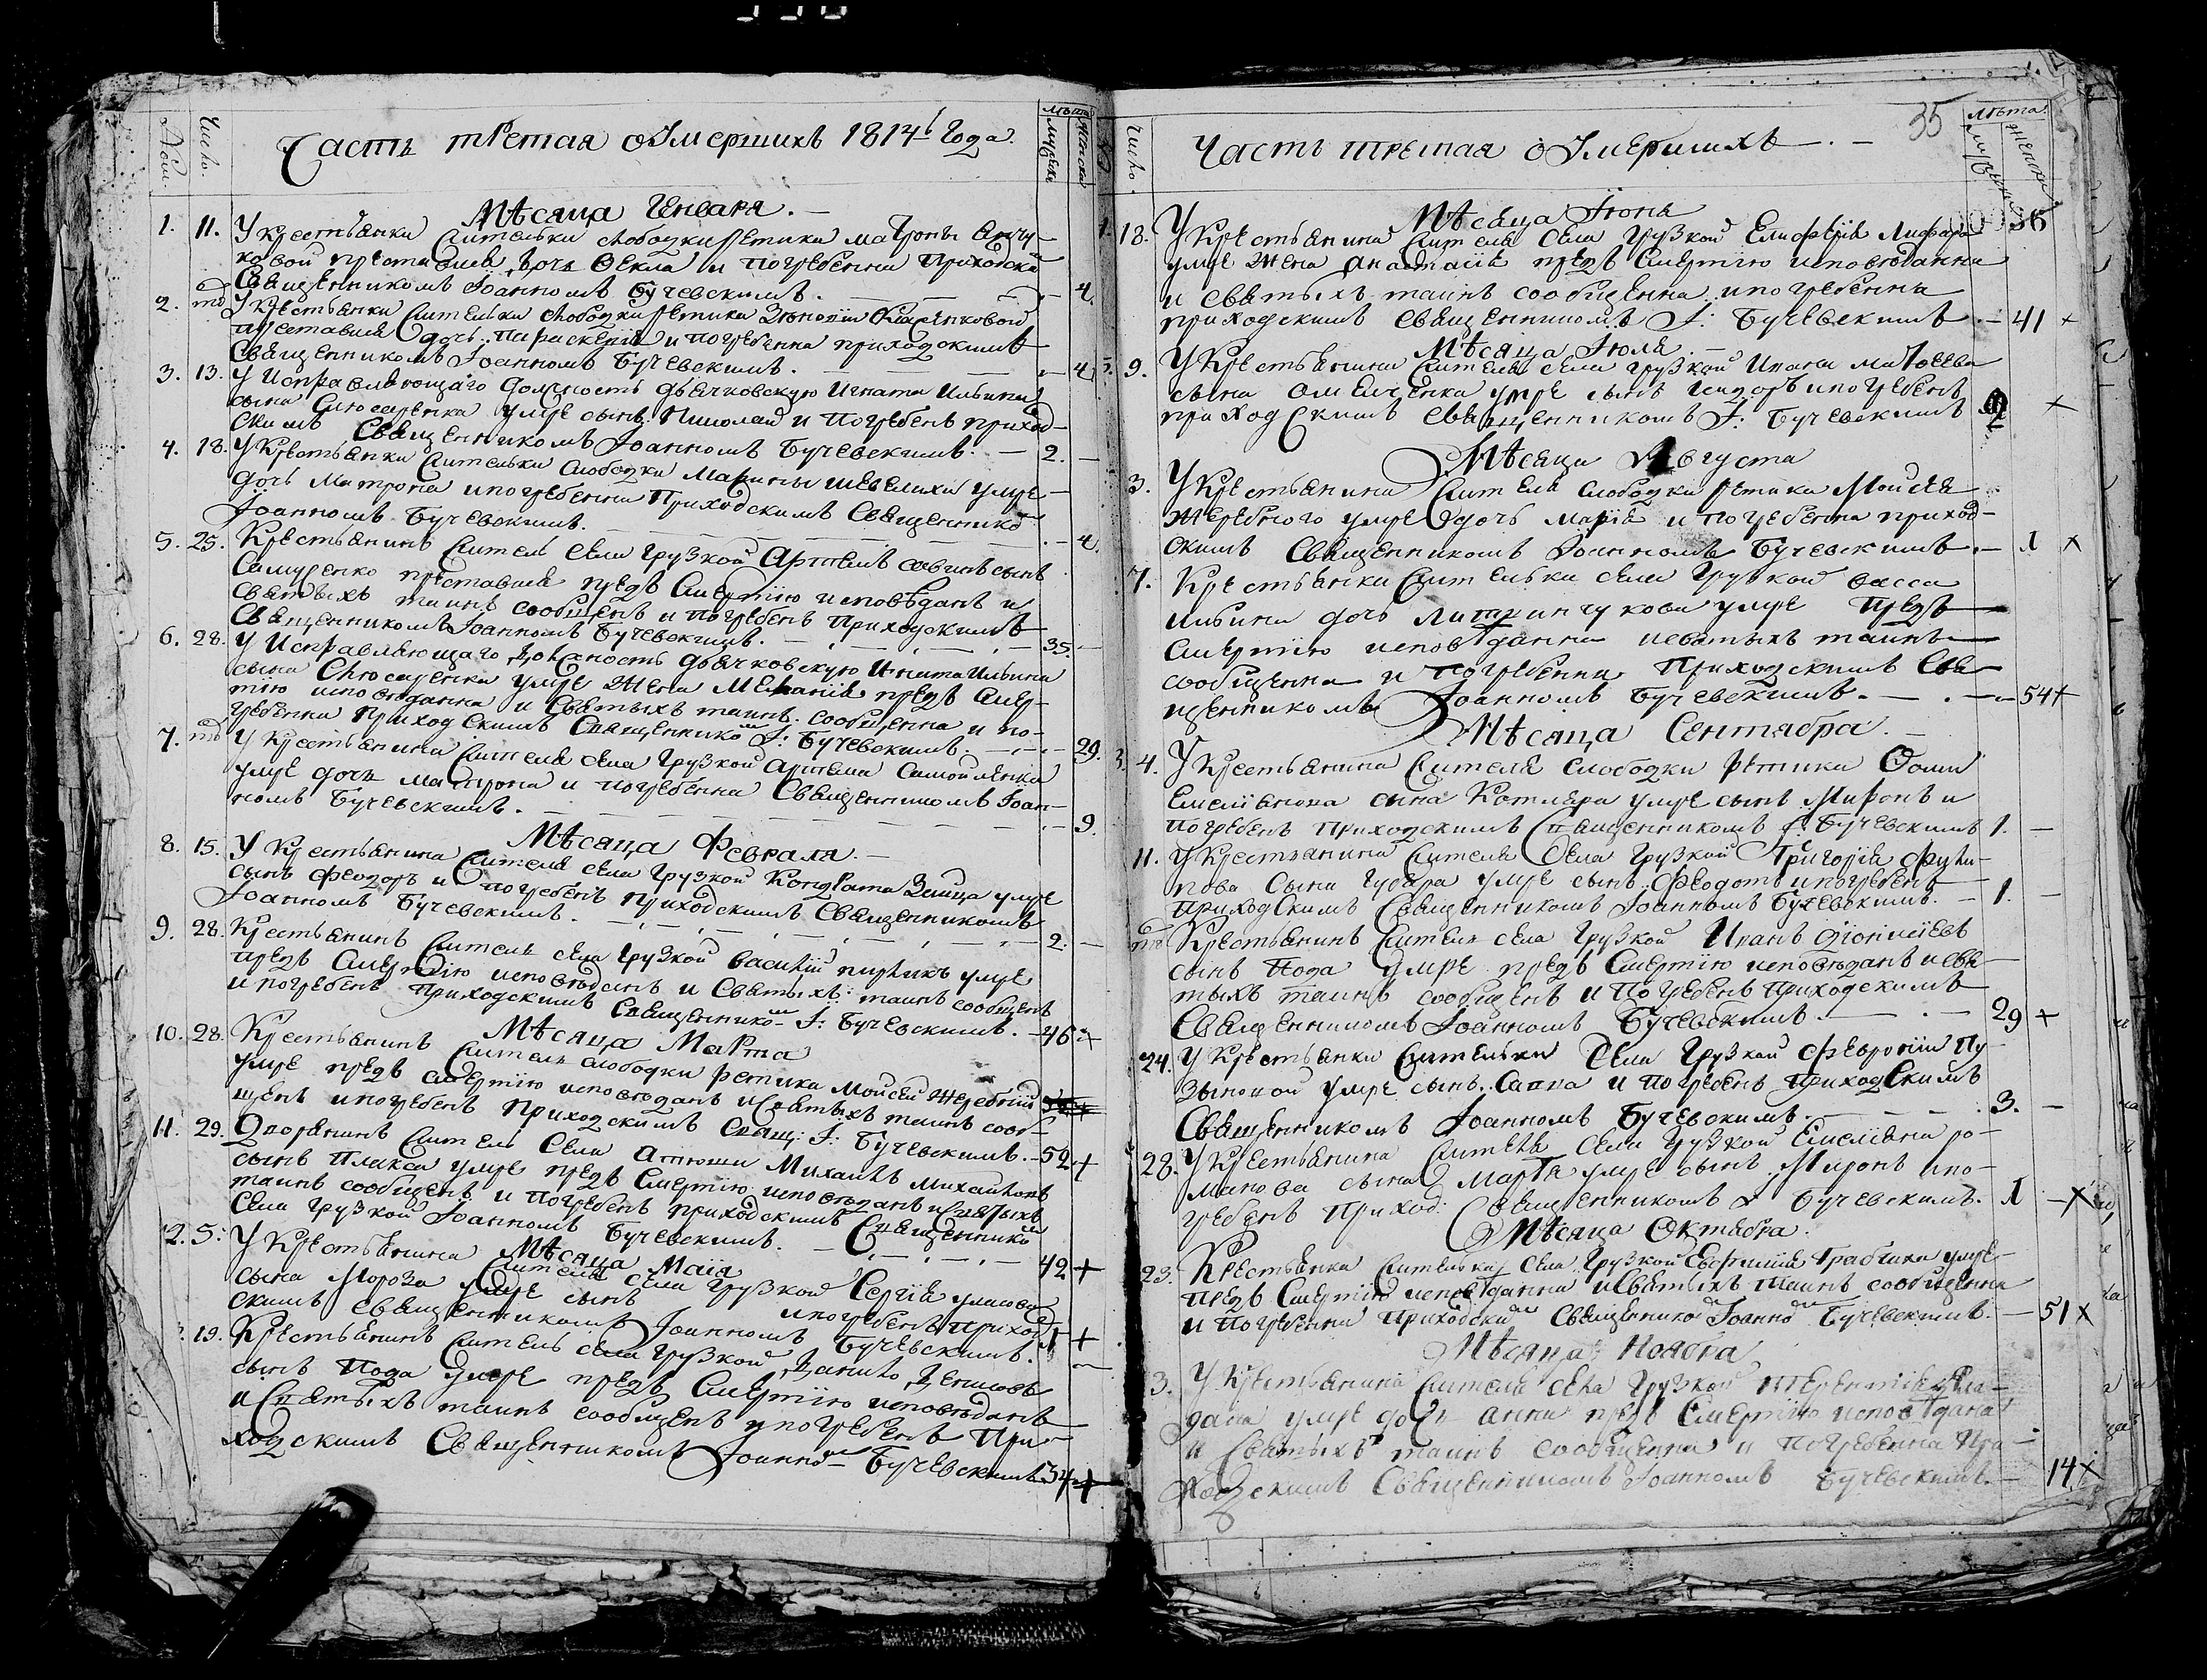 Часть третая о Умершихъ 1814 Года.
Числo.
лѣта
Мѣсяца Генваря. —
1. 11. У крестьянки жительки слободки Ретика Матроны
ковой преставися дочь Фекла и погребенна Приходски
Священникомъ Іоанномъ Бучевскимъ. — 4.
2. У Крестьянки жительки слободки Ретика
преставися дочь Параскевія и погребенна приходскимъ
Священникомъ Іоанномъ Бучевскимъ. — 4
3. 13. У Исправляющаго должность дьячковскую Игната Ильина
сына Слюсаренка умре сынъ Николай и Погребенъ приход-
скимъ Священникомъ Іоанномъ Бучевскимъ. — 2. —
4. 18. У Крестьянки жительки слободки Марины умре
дочь Матрона и погребенна Приходскимъ Священнико
Іоанномъ Бучевскимъ. — 4.
5. 25. Крестьянинъ житель села Грузкой Артемъ Саввинъ сынъ
преставися предъ Смертію исповѣданъ и
святыхъ таинъ сообщенъ и погребенъ Приходскимъ
Священникомъ Іоанномъ Бучевскимъ. — 35. —
6. 28. У Исправляющаго должность дьячковскую Игната Ильина
сына Слюсаренка умре жена Меланія предъ Смер-
тію исповѣданна и Святыхъ таинъ сообщенна и по-
гребенна Приходскимъ Священнико І: Бучевскимъ. — 29.
7. У Крестьянина жителя села Грузкой Артема
умре дочь Матрона и погребенна Священникомъ Іоан-
номъ Бучевскимъ. — 9.
Мѣсяца Февраля. —
8. 15. У Крестьянина жителя села Грузкой Кондрата Заица умре
сынъ Феодоръ и погребенъ Приходскимъ Священникомъ
Іоанномъ Бучевскимъ. — 2. —
9. 28. Крестьянинъ житель села Грузкой Василій умре
предъ Смертію исповѣданъ и Святыхъ таинъ сообщенъ
и погребенъ Приходскимъ Священнико І: Бучевскимъ. — 46 +
Мѣсяца Марта
10. 28. Крестьянинъ житель слободки Ретика Мойсей Жеребний
умре предъ смертію исповѣданъ и Святыхъ таинъ сооб-
щенъ и погребенъ Приходскимъ Свящ: І: Бучевскимъ. — 52 +
11. 29. Дворянинъ житель Села Атюши Михаилъ Михаиловъ
сынъ Плакса умре предъ Смертію исповѣданъ и Святыхъ
таинъ сообщенъ и погребенъ приходскимъ Священнико
села Грузкой Іоанномъ Бучевскимъ. — 42 +
Мѣсяца Маія
2. 5. У Крестьянина жителя села Грузкой Сергія
сына Мороза умре сынъ и погребенъ приход
скимъ Священникомъ Іоанномъ Бучевскимъ. 1 +
19. Крестьянинъ житель села Грузкой Данило Денисовъ
сынъ умре предъ Смертію исповѣданъ
и Святыхъ таинъ сообщенъ и погребенъ При-
ходскимъ Священникомъ Іоанно Бучевскимъ 34 +
Часть третая о Умершихъ. —
35
Число.
лѣта.
Мѣсяца Іюня
36
18. У Крестьянина жителя села Грузкой
умре жена Анастасія предъ Смертію исповѣданна
и святыхъ таинъ сообщенна и погребенна
приходскимъ Священникомъ І: Бучевскимъ — 41 +
Мѣсяца Іюля —
9. У Крестьянина жителя села Грузкой Ивана Матвеева
сына Омелченка умре сынъ и погребенъ
приходскимъ священникомъ І: Бучевскимъ +
Мѣсяца Августа
3. У Крестьянина жителя слободки Ретика Мойсея
Жеребного умре дочь Марія и погребенна приход-
скимъ Священникомъ Іоанномъ Бучевскимъ. — 1 ×
7. Крестьянки жительки села Грузкой Васса
Ильина дочь умре предъ
смертію исповѣданна и святыхъ таинъ
сообщенна и погребенна Приходскимъ Свя
щенникомъ Іоанномъ Бучевскимъ. — 54 +
Мѣсяца Сентября. —
4. У Крестьянина жителя слободки Ретика Фомы
Емеліанова сына Котляра умре сынъ Миронъ и
погребенъ Приходскимъ Священникомъ І: Бучевскимъ 1. —
11. У Крестьянина жителя села Грузкой Григорія Фили-
пова сына умре сынъ Феодотъ и погребенъ
Приходскимъ Священникомъ Іоанномъ Бучевскимъ. — 1. —
Крестьянинъ житель села Грузкой Иванъ
сынъ умре предъ Смертію исповѣданъ и свя
тыхъ таинъ сообщенъ и погребенъ Приходскимъ
Священникомъ Іоанномъ Бучевскимъ — 29 +
24. У Крестьянки жительки села Грузкой Февроніи Пу-
зыновой умре сынъ Савва и погребенъ Приходскимъ
Священникомъ Іоанномъ Бучевскимъ. — 3. —
28. У Крестьянина жителя села Грузкой Емеліана Ро-
манова сына умре сынъ Миронъ и по-
гребенъ Приход: Священникомъ І Бучевскимъ. 1 — ×
Мѣсяца Октября.
23. Крестьянка жителька села Грузкой Евфимія умре
предъ Смертію исповѣданна и Святыхъ таинъ сообщенна
и погребенна Приходски Священнико Іоанно Бучевскимъ. — 51 ×
Мѣсяца Ноября
3. У Крестьянина жителя села Грузкой Терентія
умре дочь Анна предъ Смертію исповѣдана
и Святыхъ таинъ сообщенна и погребенна При-
ходскимъ Священникомъ Іоанномъ Бучевскимъ. — 14 ×